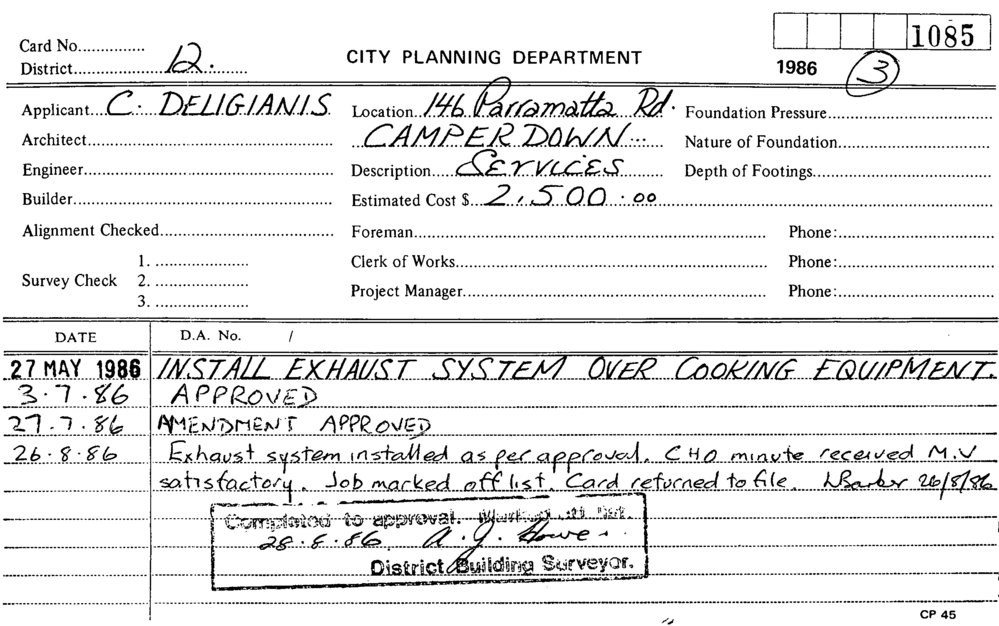 Card No...............
1085
District.....................12...........
CITY PLANNING DEPARTMENT
1986 3
Applicant...C. DELIGIANIS
Location...146 Parramatta Rd.
Foundation Pressure
Architect
CAMPERDOWN
Nature of Foundation
Engineer
Description...SERVICES
Depth of Footings
Builder
Estimated Cost $...2,500.00
Alignment Checked
Foreman
Phone:
Survey Check 1.
2.
3.
Clerk of Works
Phone:
Project Manager
Phone:
DATE D.A. No. /
27 MAY 1986 INSTALL EXHAUST SYSTEM OVER COOKING EQUIPMENT.
3.7.86 APPROVED
27.7.86 AMENDMENT APPROVED
26.8.86 Exhaust system installed as per approval. CHO minute received M.V
satisfactory. Job marked off list. Card returned to file. NBarker 26/8/86
Completed to approval. Marked off list.
28.8.86 A.J. Howe
District Building Surveyor.
CP 45